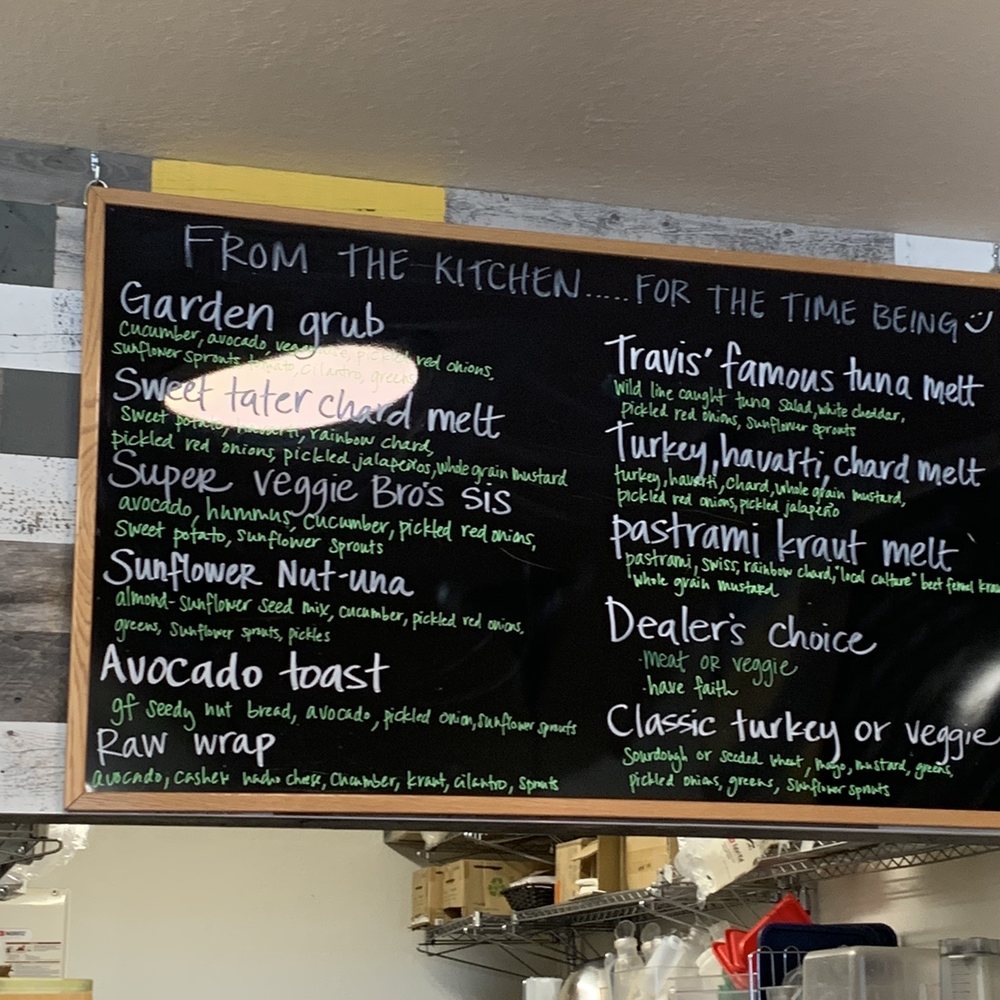 FROM THE KITCHEN..... FOR THE TIME BEING
Garden grub
cucumber, avocado, red onions,
sunflower sprouts, tomato, cilantro, greens
Sweet tater chard melt
sweet potato, havarti, rainbow chard,
pickled red onions, pickled jalapeños, whole grain mustard
Super veggie Bro's sis
avocado, hummus, cucumber, pickled red onions,
sweet potato, sunflower sprouts
Sunflower Nut-una
almond-sunflower seed mix, cucumber, pickled red onions,
greens, sunflower sprouts, pickles
Avocado toast
gf seedy nut bread, avocado, pickled onion, sunflower sprouts
Raw wrap
avocado, cashew nacho cheese, cucumber, kraut, cilantro, sprouts
Travis' famous tuna melt
wild line caught tuna salad, white cheddar,
pickled red onions, sunflower sprouts
Turkey, havarti, chard melt
turkey, havarti, chard, whole grain mustard,
pickled red onions, pickled jalapeño
pastrami kraut melt
pastrami, swiss, rainbow chard, "local culture" beet fennel
whole grain mustard
Dealer's choice
·meat or veggie
·have faith
Classic turkey or veggie
Sourdough or seeded wheat, mayo, mustard, greens,
pickled onions, greens, sunflower sprouts